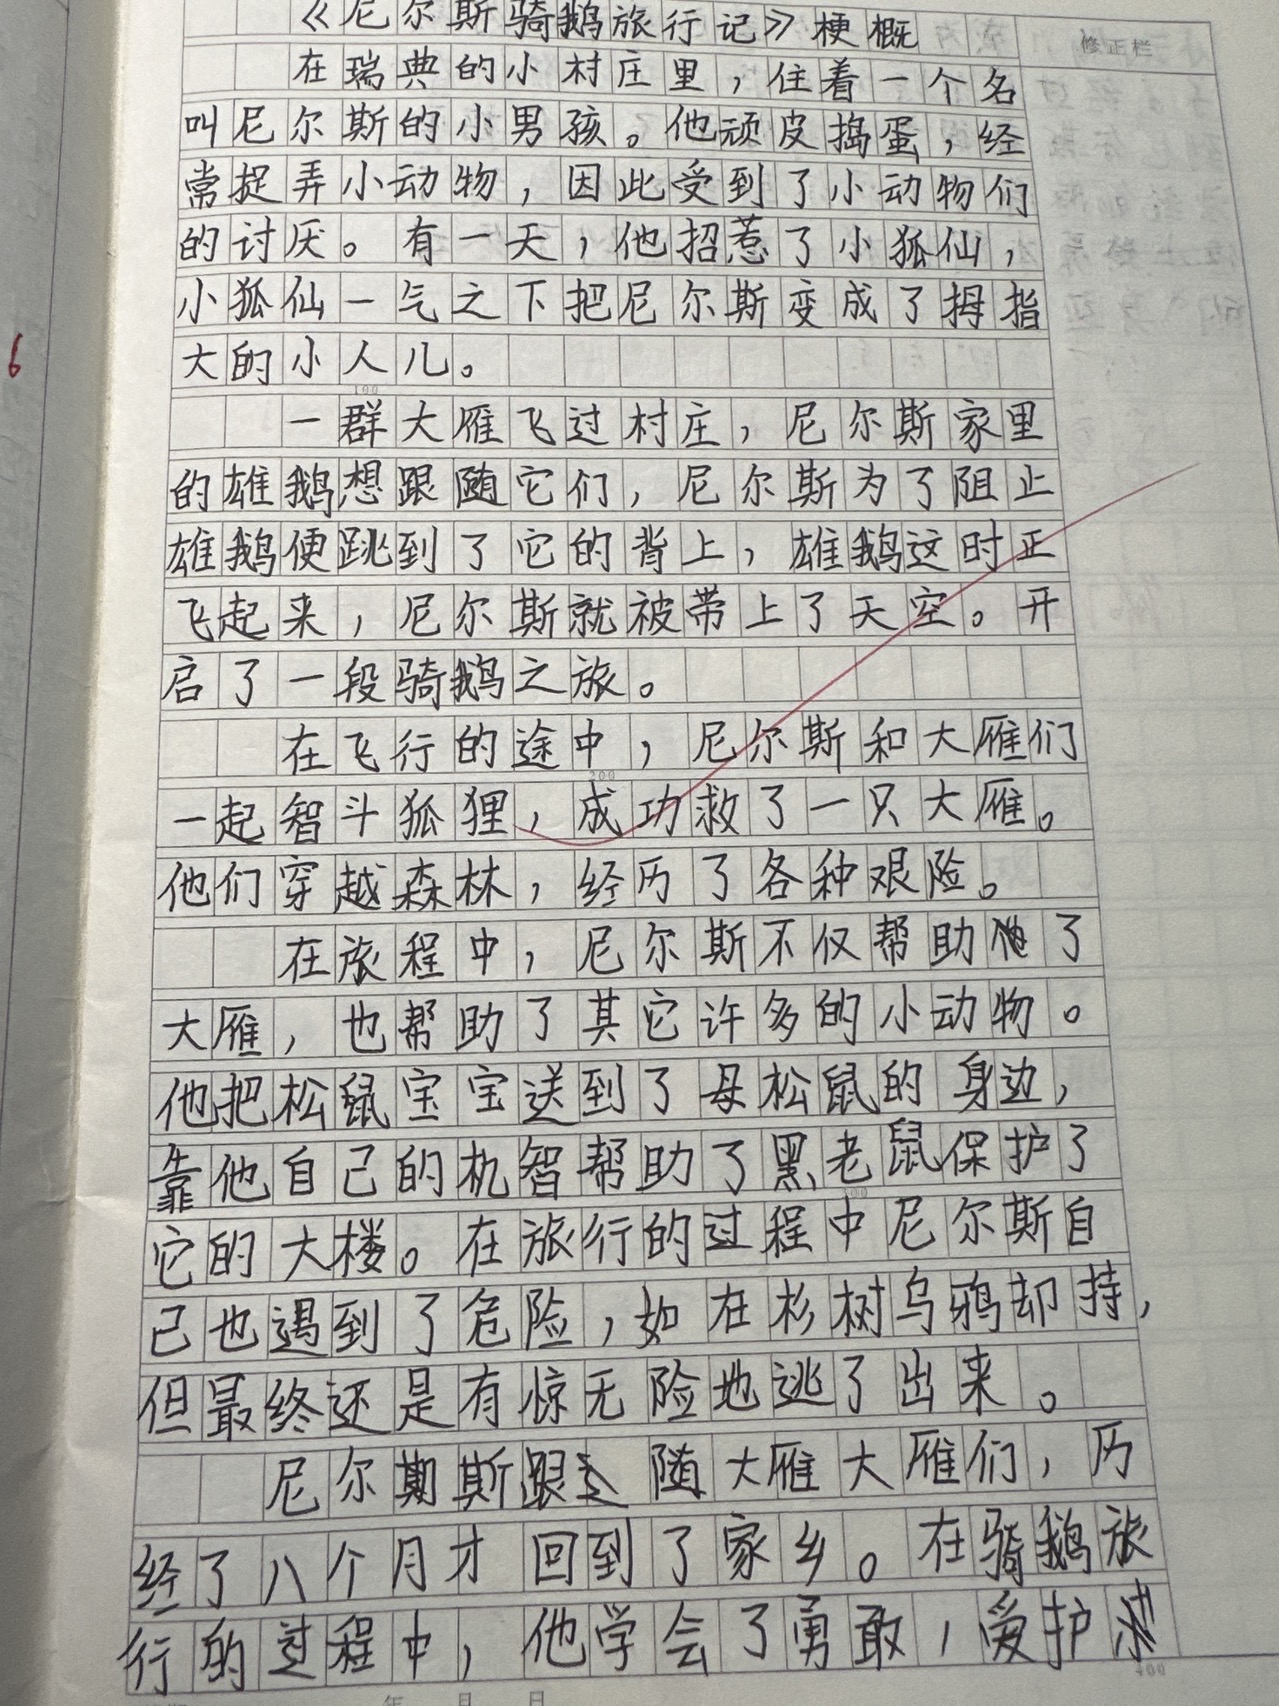 《尼尔斯骑鹅旅行记》梗概
修正栏
在瑞典的小村庄里，住着一个名
叫尼尔斯的小男孩。他顽皮捣蛋，经
常捉弄小动物，因此受到了小动物们
的讨厌。有一天，他招惹了小狐仙，
小狐仙一气之下把尼尔斯变成了拇指
大的小人儿。
100
一群大雁飞过村庄，尼尔斯家里
的雄鹅想跟随它们，尼尔斯为了阻止
雄鹅便跳到了它的背上，雄鹅这时正
飞起来，尼尔斯就被带上了天空。开
启了一段骑鹅之旅。
在飞行的途中，尼尔斯和大雁们
200
一起智斗狐狸，成功救了一只大雁。
他们穿越森林，经历了各种艰险。
在旅程中，尼尔斯不仅帮助了
大雁，也帮助了其它许多的小动物。
他把松鼠宝宝送到了母松鼠的身边，
靠他自己的机智帮助了黑老鼠保护了
300
它的大楼。在旅行的过程中尼尔斯自
己也遇到了危险，如在杉树乌鸦却持，
但最终还是有惊无险地逃了出来。
尼尔斯跟随大雁大雁们，历
经了八个月才回到了家乡。在骑鹅旅
行的过程中，他学会了勇敢，爱护
400
年 月 日
6